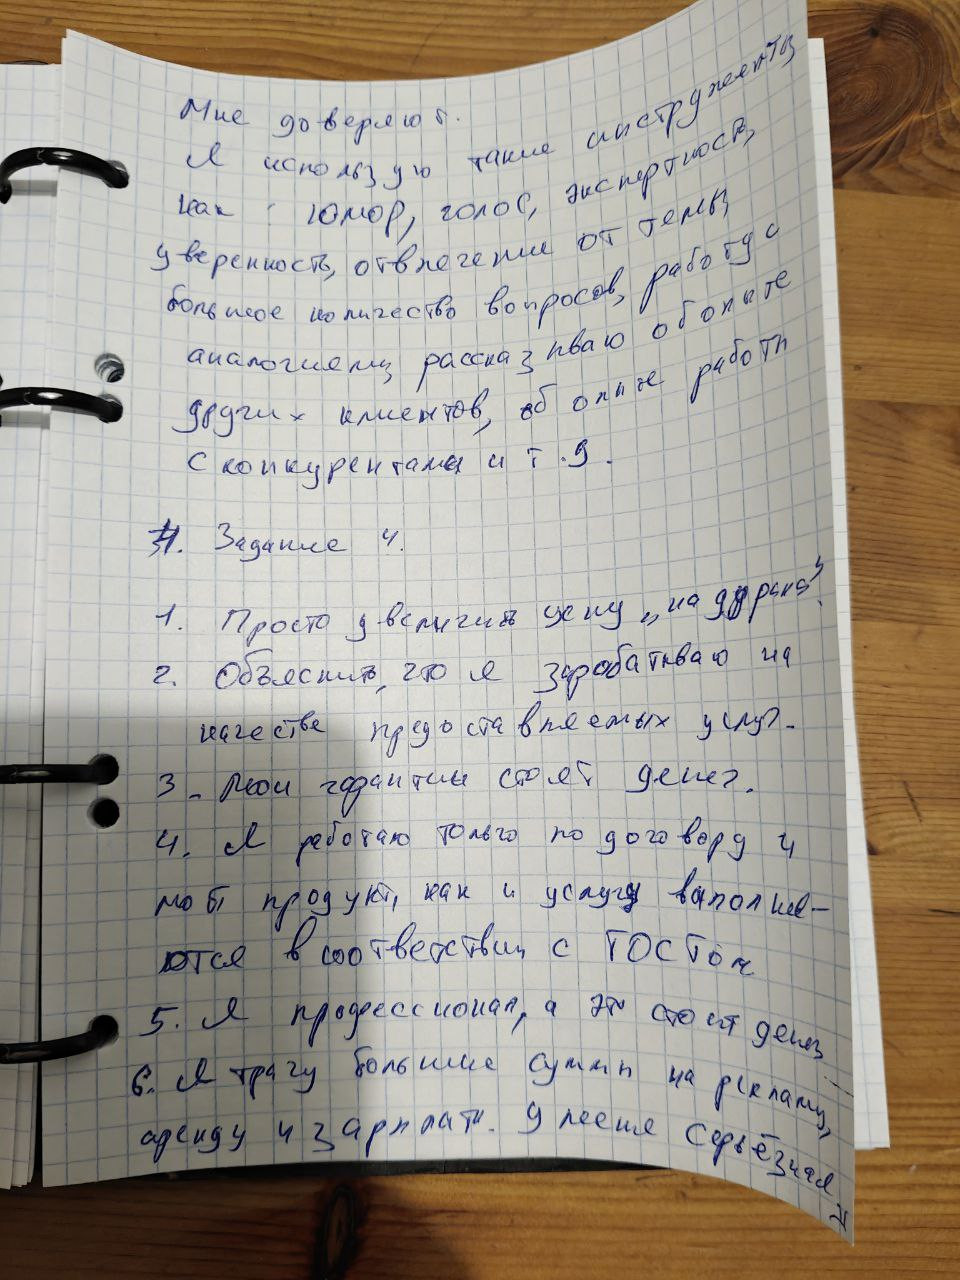 Мне доверяют.
Я использую такие инструменты
как: юмор, голос, экспертность,
уверенность, отвлечение от темы,
большое количество вопросов, работу с
аналогиями, рассказываю о опыте
других клиентов, об опыте работы
с конкурентами и т.д.
4. Задание 4.
1. Просто увеличить цену „на дурака".
2. Объяснить, что я зарабатываю на
качестве предоставляемых услуг.
3. Мои гарантии стоят денег.
4. Я работаю только по договору и
мой продукт, как и услугу выполня-
ются в соответствии с ГОСТом
5. Я профессионал, а это стоит денег
6. Я трачу большие суммы на рекламу,
аренду и зарплаты. У меня серьёзная